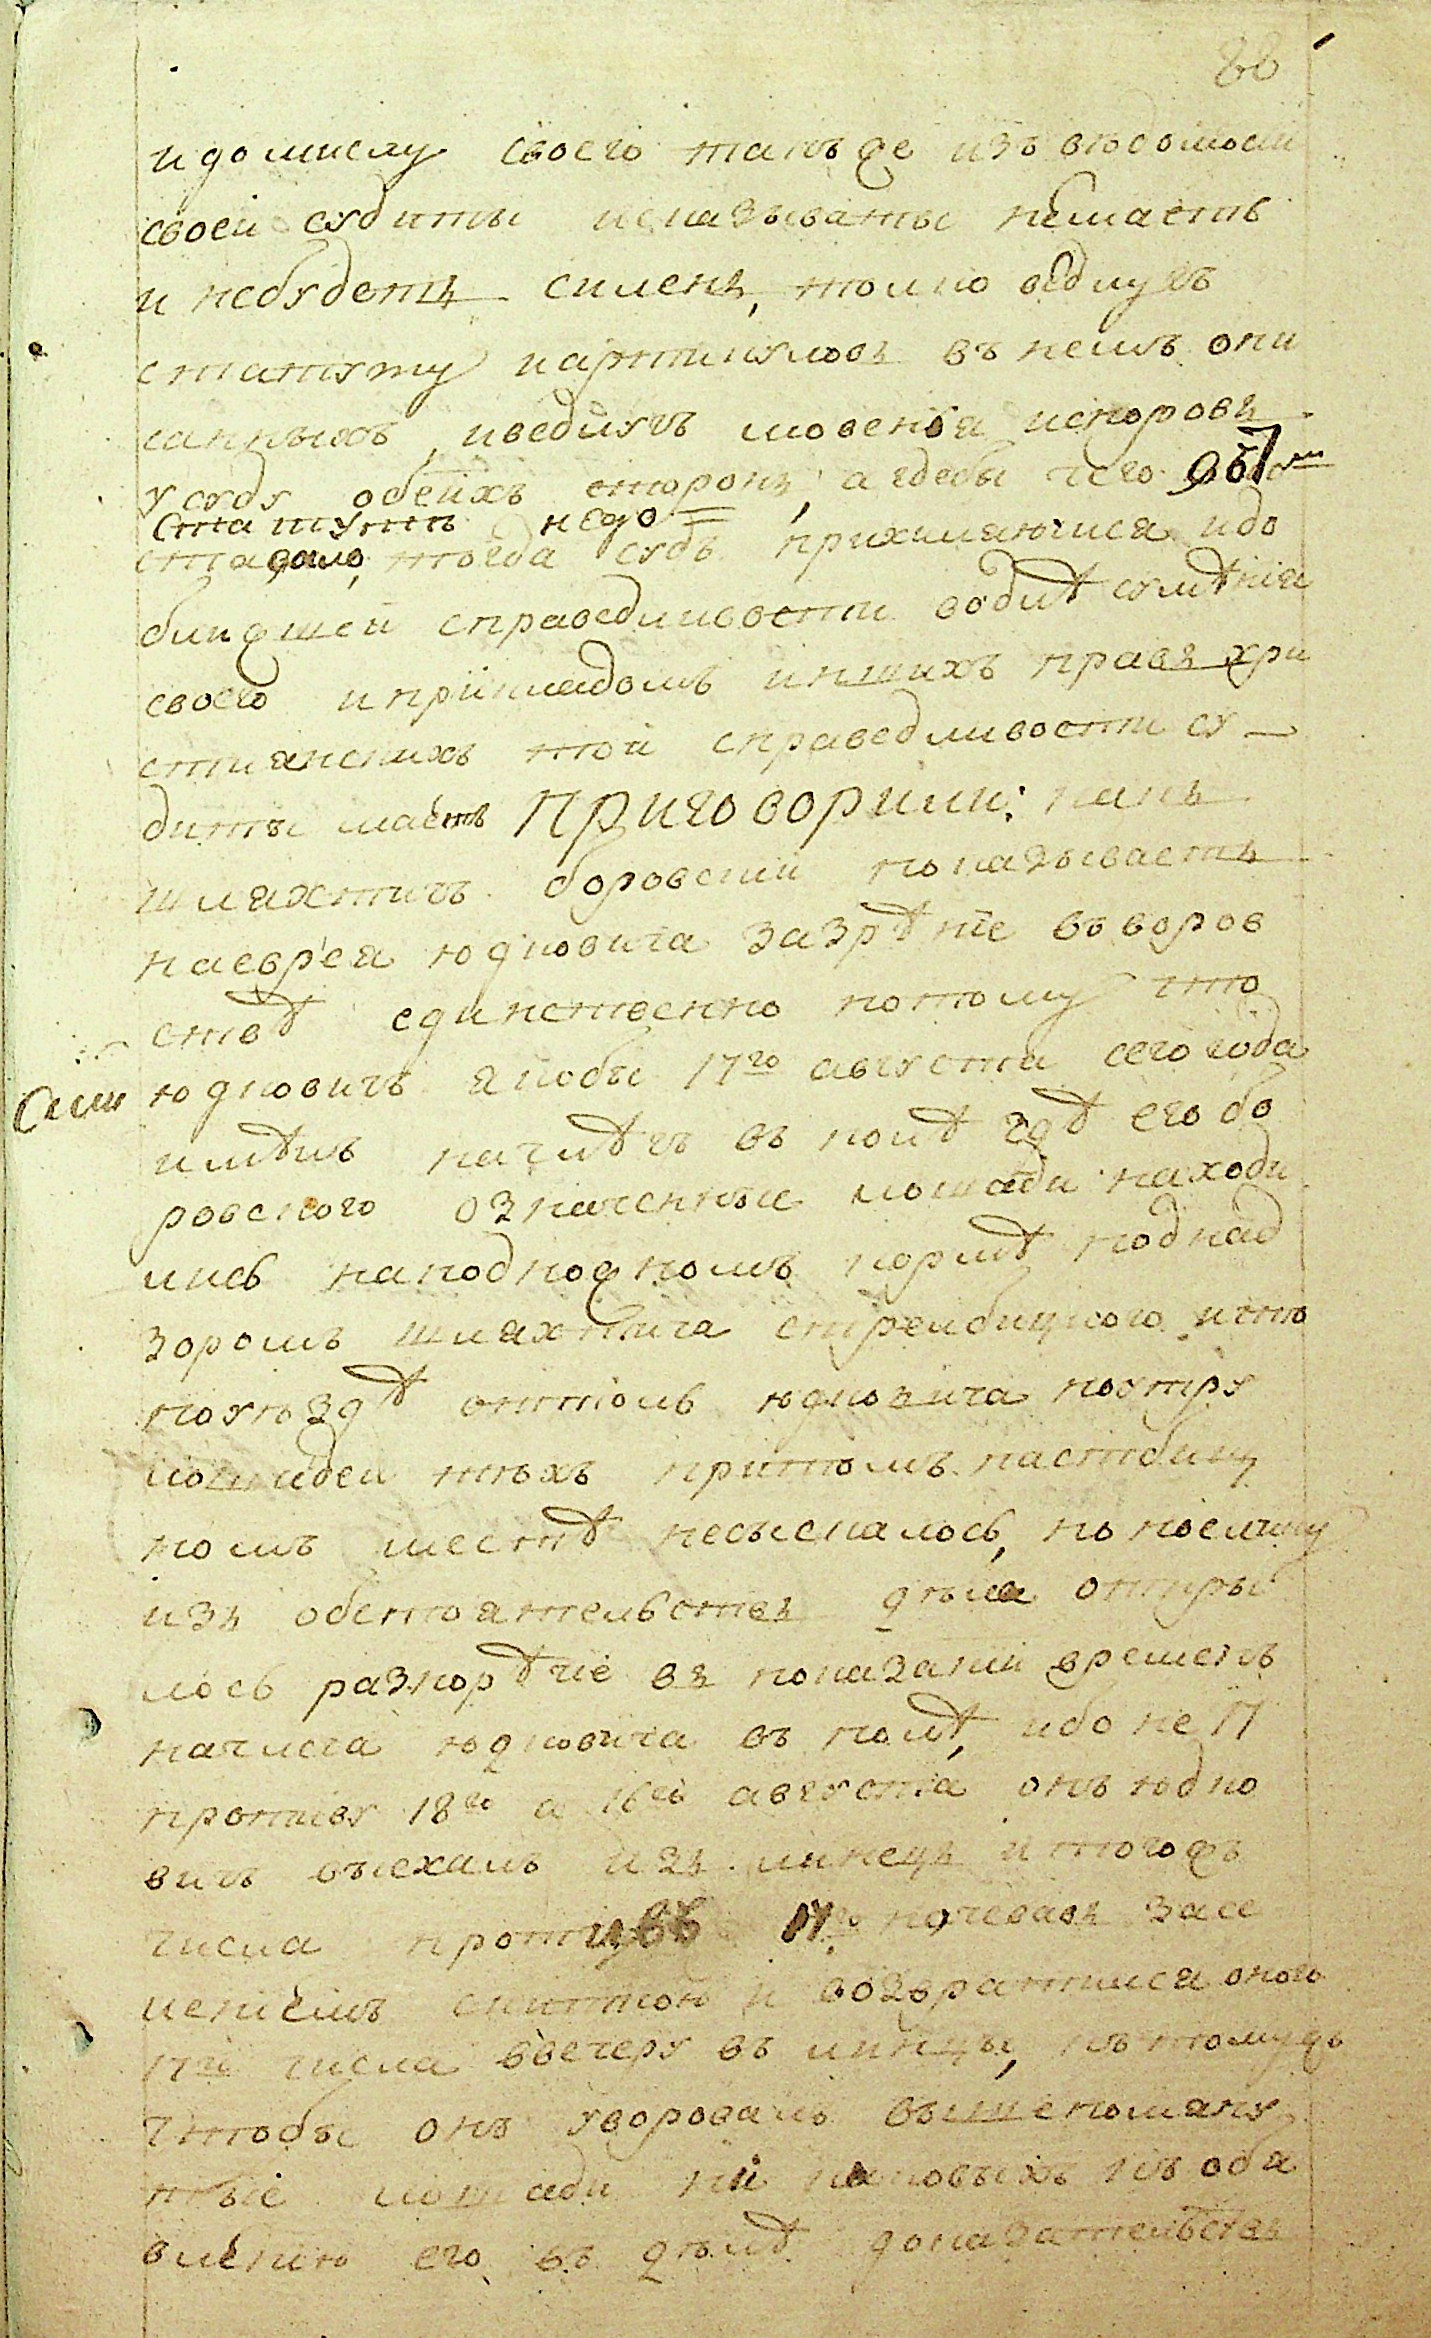 88
и домислу своего також де изъ вѣдомости
своей судиты и сказываты немаетъ
и небудетъ силенъ, толко ведлугъ
статуту и артикуловъ въ немъ опи
санныхъ, и ведлугъ мовеня и споровъ
у суду обеихъ сторонъ, а где бы чего въ семъ
статутѣ недо
ставало, тогда судъ прихиляючися идо
ближшей справедливости водлѣ сумѣнія
своего и прикладомъ иншихъ правъ хри
стиянскихъ той справедливости су
диты маетъ приговорили: панъ
шляхтичъ боровский показываетъ
на еврея юдковича зазрѣніе въ воров
ствѣ единственно потому что
юдковичъ якобы 17го августа сего года
имѣлъ начлѣгъ въ полѣ гдѣ его бо
ровского означенные лошади находи
лись на подножномъ кормѣ под над
зоромъ шляхтича стрембицкого, и что
по уѣздѣ оттоль юдковича поутру
лошадей тѣхъ при томъ пастбищ
номъ местѣ несыскалось, но поелику
изъ обстоятельствъ дѣла откры
лось разнорѣчіе въ показаніи времени
начлега юдковича въ полѣ, ибо не 17
противу 18го а 16го августа онъ юдко
вичъ выехалъ изъ линецъ и того жъ
числа противъ 17го ночевавъ за се
леніемъ скиткою и возвратился оного
17го числа ввечеру въ линцы, къ тому жъ
чтобы онъ уворовалъ вышепомяну
тые лошади ни каковыхъ къ обя
влению его въ дѣлѣ доказательствъ